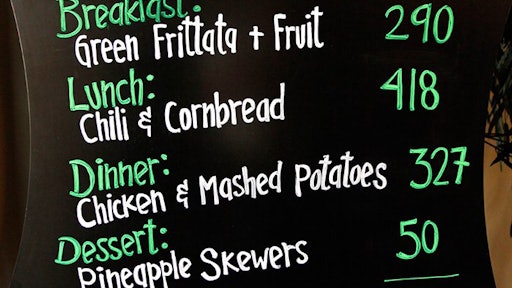 Breakfast: 290
Green Frittata + Fruit
Lunch: 418
Chili & Cornbread
Dinner: 327
Chicken & Mashed Potatoes
Dessert: 50
Pineapple Skewers